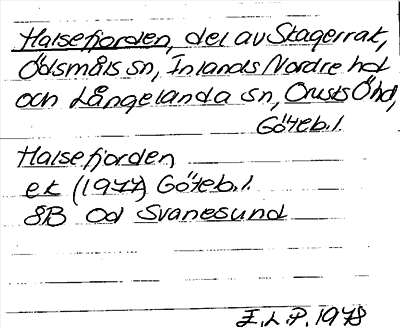 Halsefjorden, del av Skagerrak,
Ödsmåls sn, Inlands Nordre hd
och Långelanda sn, Orusts Ö hd,
Göteb.l.
Halsefjorden
ek (1977) Göteb.l.
8B Od Svanesund
E.L.P. 1978